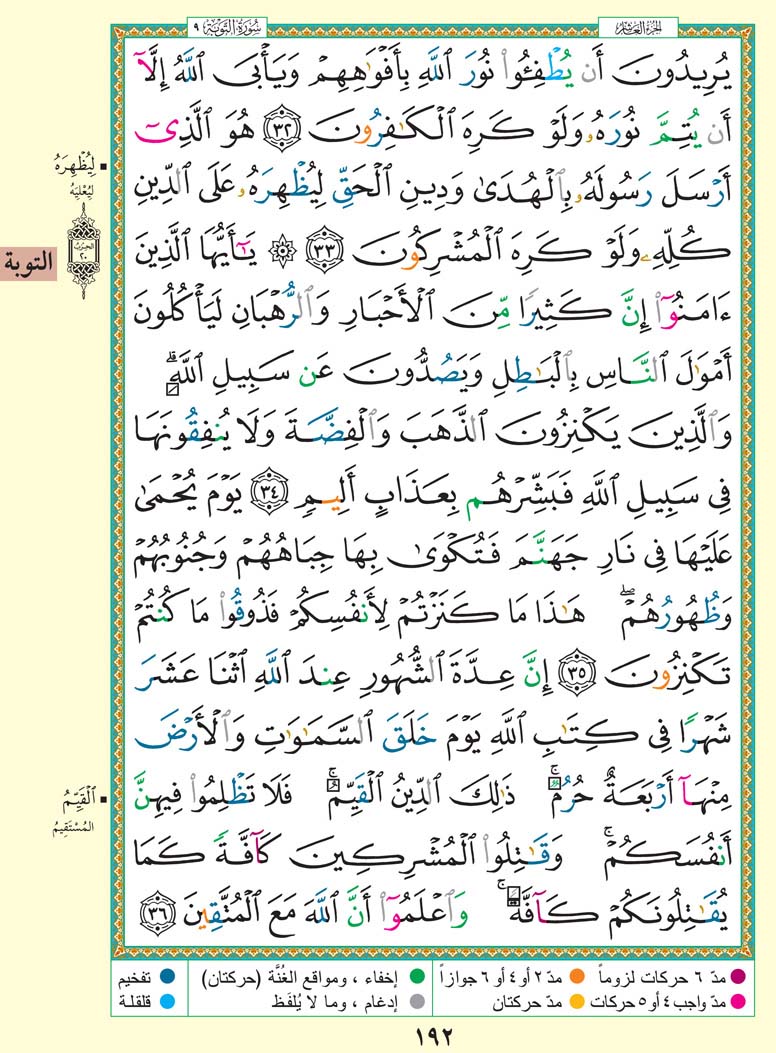 الجزء العاشر
سُورَةُ التَّوْبَةِ ٩
يُرِيدُونَ أَن يُطْفِـُٔوا۟ نُورَ ٱللَّهِ بِأَفْوَٰهِهِمْ وَيَأْبَى ٱللَّهُ إِلَّآ
أَن يُتِمَّ نُورَهُۥ وَلَوْ كَرِهَ ٱلْكَـٰفِرُونَ ٣٢ هُوَ ٱلَّذِىٓ
أَرْسَلَ رَسُولَهُۥ بِٱلْهُدَىٰ وَدِينِ ٱلْحَقِّ لِيُظْهِرَهُۥ عَلَى ٱلدِّينِ
كُلِّهِۦ وَلَوْ كَرِهَ ٱلْمُشْرِكُونَ ٣٣ ۞ يَـٰٓأَيُّهَا ٱلَّذِينَ
ءَامَنُوٓا۟ إِنَّ كَثِيرًا مِّنَ ٱلْأَحْبَارِ وَٱلرُّهْبَانِ لَيَأْكُلُونَ
أَمْوَٰلَ ٱلنَّاسِ بِٱلْبَـٰطِلِ وَيَصُدُّونَ عَن سَبِيلِ ٱللَّهِ ۗ
وَٱلَّذِينَ يَكْنِزُونَ ٱلذَّهَبَ وَٱلْفِضَّةَ وَلَا يُنفِقُونَهَا
فِى سَبِيلِ ٱللَّهِ فَبَشِّرْهُم بِعَذَابٍ أَلِيمٍ ٣٤ يَوْمَ يُحْمَىٰ
عَلَيْهَا فِى نَارِ جَهَنَّمَ فَتُكْوَىٰ بِهَا جِبَاهُهُمْ وَجُنُوبُهُمْ
وَظُهُورُهُمْ ۖ هَـٰذَا مَا كَنَزْتُمْ لِأَنفُسِكُمْ فَذُوقُوا۟ مَا كُنتُمْ
تَكْنِزُونَ ٣٥ إِنَّ عِدَّةَ ٱلشُّهُورِ عِندَ ٱللَّهِ ٱثْنَا عَشَرَ
شَهْرًا فِى كِتَـٰبِ ٱللَّهِ يَوْمَ خَلَقَ ٱلسَّمَـٰوَٰتِ وَٱلْأَرْضَ
مِنْهَآ أَرْبَعَةٌ حُرُمٌ ۚ ذَٰلِكَ ٱلدِّينُ ٱلْقَيِّمُ ۚ فَلَا تَظْلِمُوا۟ فِيهِنَّ
أَنفُسَكُمْ ۚ وَقَـٰتِلُوا۟ ٱلْمُشْرِكِينَ كَآفَّةً كَمَا
يُقَـٰتِلُونَكُمْ كَآفَّةً ۚ وَٱعْلَمُوٓا۟ أَنَّ ٱللَّهَ مَعَ ٱلْمُتَّقِينَ ٣٦
لِيُظْهِرَهُ
لِيُعْلِيَهُ
الحزب
٢٠
التوبة
ٱلْقَيِّمُ
المُسْتَقِيمُ
مدّ ٦ حركات لزوماً
مدّ ٢ أو ٤ أو ٦ جوازاً
إخفاء ، ومواقع الغُنَّة (حركتان)
تفخيم
مدّ واجب ٤ أو ٥ حركات
مدّ حركتان
إدغام ، وما لا يُلفَظ
قلقلة
١٩٢